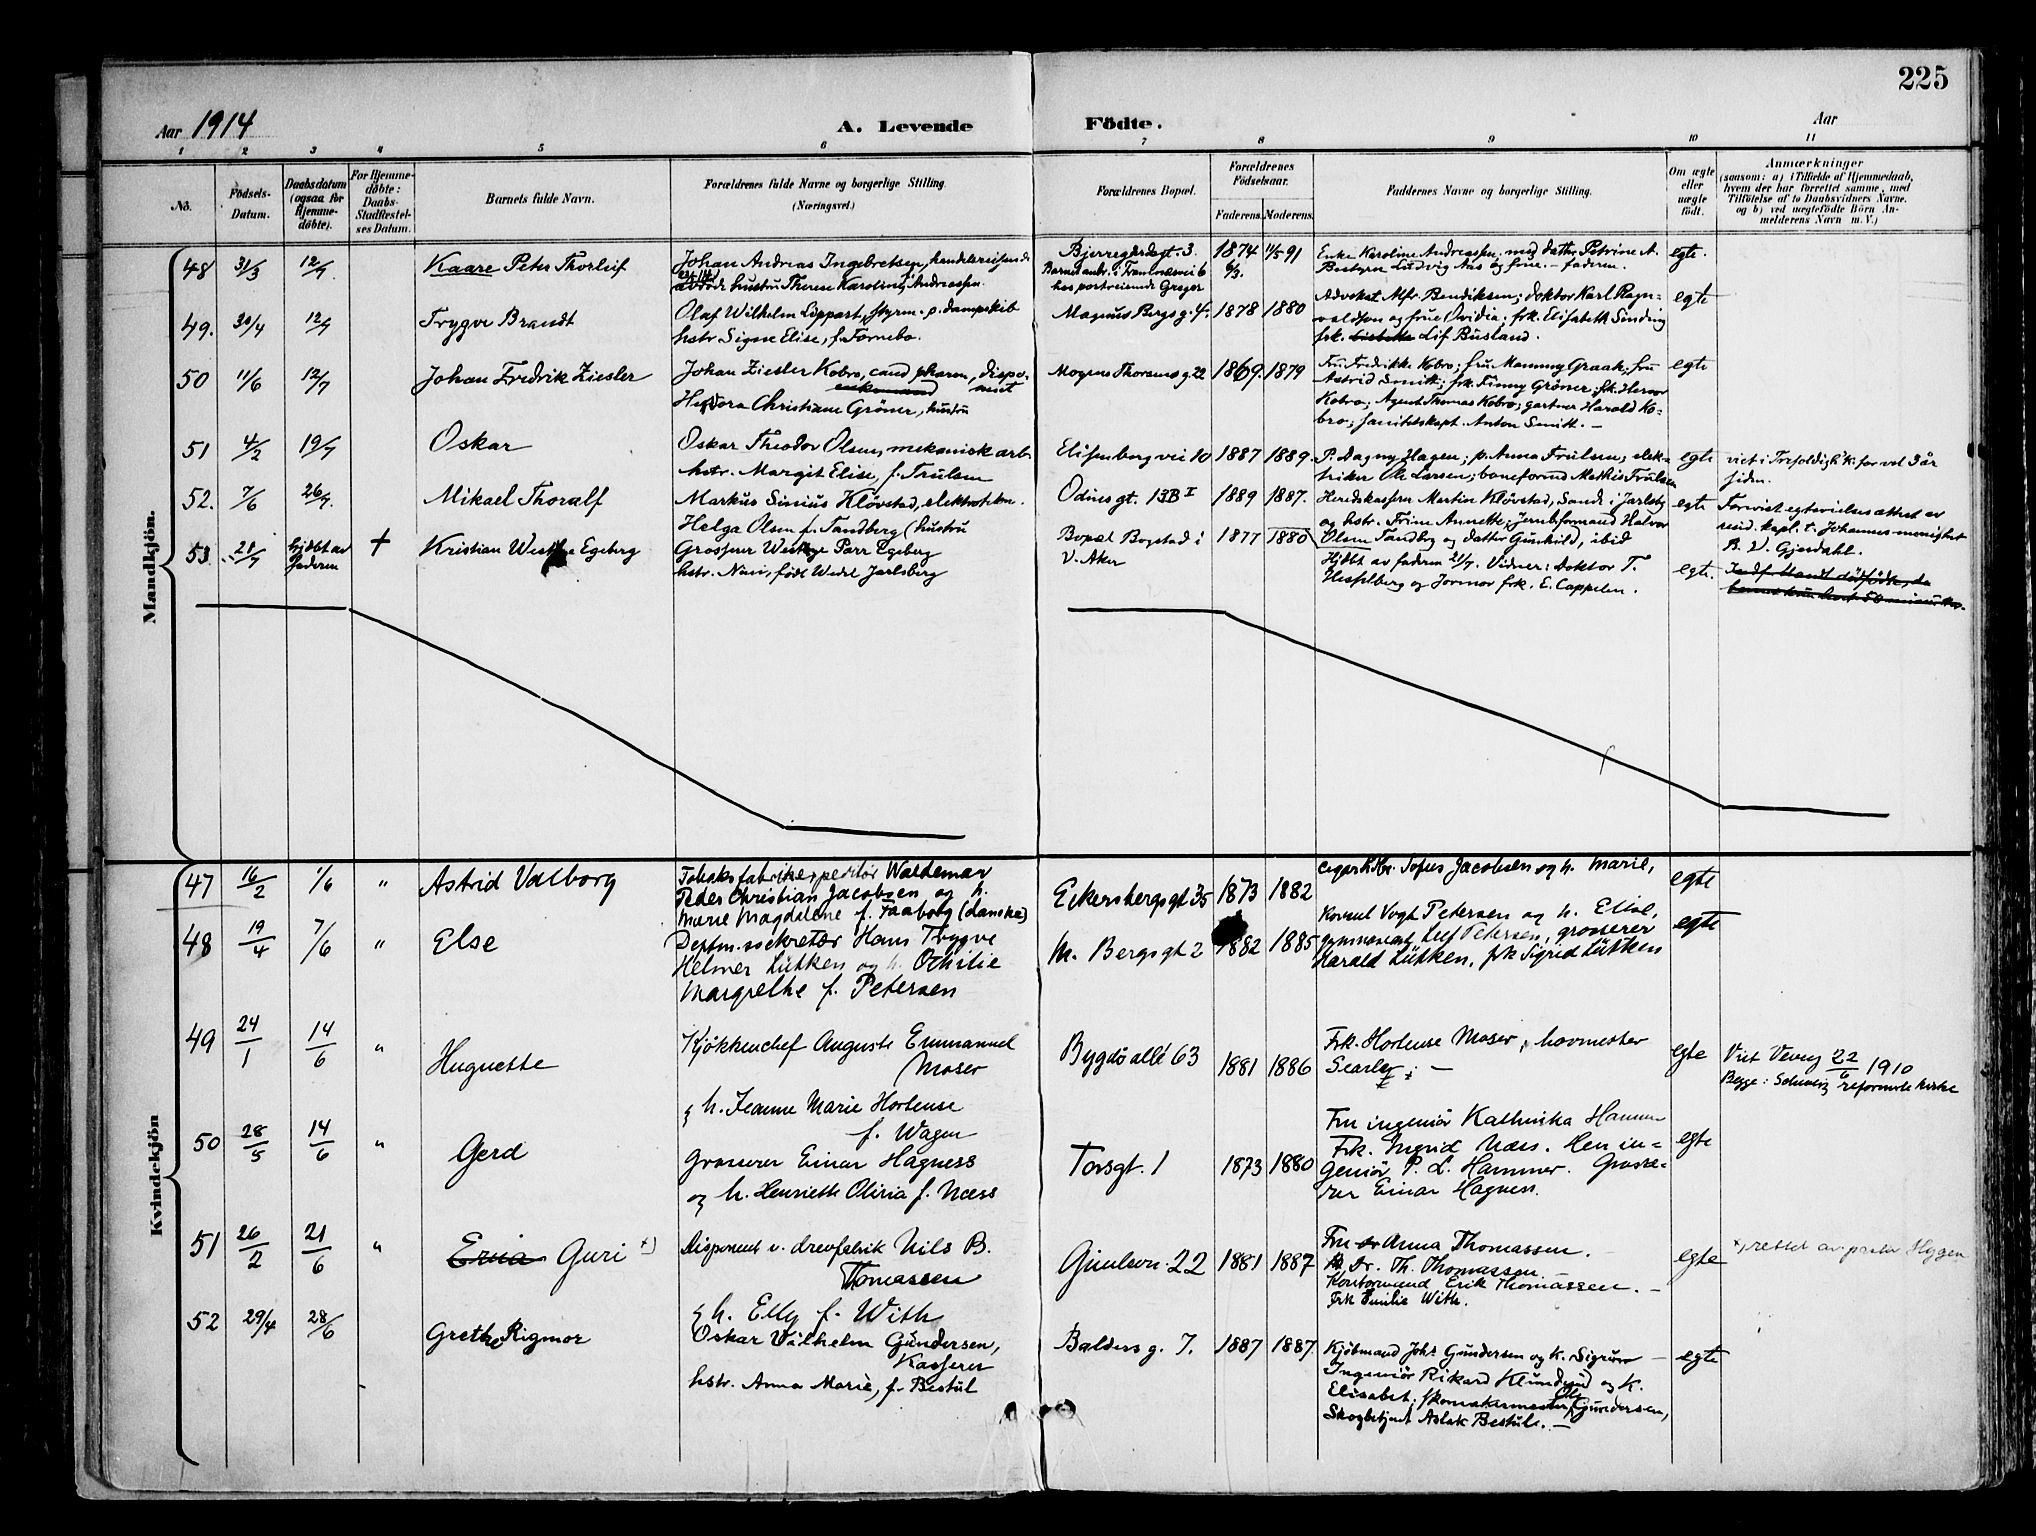 225
Aar 1914
A. Levende Födte.
Aar
1 2 3 4 5 6 7 8 9 10 11
No.
Födsels-Datum.
Daabsdatum (ogsaa for Hjemme-döbte).
For Hjemme-döbte: Daabs-Stadfæstel-ses Datum.
Barnets fulde Navn.
Forældrenes fulde Navne og borgerlige Stilling.
(Næringsvei.)
Forældrenes Bopæl.
Forældrenes Födselsaar.
Faderens. Moderens.
Faddernes Navne og borgerlige Stilling.
Om ægte eller uægte födt.
Anmærkninger
(saasom: a) i Tilfælde af Hjemmedaab, hvem der har forrettet samme, med Tilföielse af to Daabsvidners Navne, og b) ved uægtefödte Börn An-melderens Navn m. V.)
Mandkjön.
48 31/3 12/7. Kaare Peter Thorleif
Johan Andreas Ingebretsen, handelsreisende
hustru Therese Karoline Andreassen.
Bjerregårdsgt. 3.
1874 11/5 91
6/3.
Enke Karoline Andreassen, med datter Petrine A.
Bestyrer Ludvig Aas og frue. – faderen.
egte.
49. 30/4 12/7 Trygve Brandt
Olaf Wilhelm Lippart, styrm. p. dampskib
hstr. Signe Elise, f. Fornebo.
Magnus Bergs g. 4. 1878 1880
Advokat Alfr. Bendiksen; doktor Karl Ragn-
valdsen og frue Ovidia; frk. Elisabeth Sinding
frk. Lif Busland.
egte
50 11/6 12/7 Johan Fredrik Ziesler
Johan Ziesler Kobro, cand pharm, dispo-
nent
Christiane Gröner, hustru
Mogens Thorsens g. 22 1869. 1879
Fru Fredrikke Kobro; fru Mammy Graah, fru
Astrid Smitt; frk. Finny Gröner; frk. Hervor
Kobro; Agent Thomas Kobro; gartner Harald Ko-
bro; Sanitetskapt. Anton Smitt. –
egte
51 4/2 19/7 Oskar
Oskar Theodor Olsen, mekanisk arb.
hstr. Margit Elise, f. Frulsen
Elisenberg vei 10 1887 1889.
P. Dagny Hagen; p. Anna Frulsen; elek-
triker Ole Larsen; baneformd Mathis Frulsen
egte
viet i Trefoldigh. k. for vel 3 år
siden.
52. 7/6 26/7. Mikael Thoralf
Markus Sinius Klövstad, elektrotekn.
Helga Olsen f. Sandberg (hustru
Odins gt. 13B I 1889 1887.
Martin Klövstad, Sande i Jarlsbg
og hstr. Trine Annette; Jernbformand Halvor
Olsen Sandbrg og datter Gunhild, ibid
egte
Forevist egtevielsesattest av
resid. kapl. t. Johannes menighet
B. V. Gjerdahl.
53. 21/7 hjdbt av faderen + Kristian Westye Egeberg
Grosserer Westye Parr Egeberg
hstr. Nini, född Wedel Jarlsberg
Bopæl Bogstad i
V. Aker
1877 1880
Hjdbt av faderen 21/7. Vidner: Doktor T.
Hesselberg og Jormor frk. E. Cappelen.
egte.
Kvindekjön
47 16/2 1/6 " Astrid Valborg
Tobaksfabrikexpeditör Waldemar
Peder Christian Jacobsen og h.
Marie Magdalene f. Faaborg (danske)
Eckersbergsgt 35 1873 1882
Sofus Jacobsen og h. Marie,
egte
48 19/4 7/6 " Else
Deptm.ssekretær Hans Trygve
Helmer Lütken og h. Othilie
Margrethe f. Petersen
M. Bergs gt 2 1882 1885
Konsul Vogt Petersen og h. Elise,
Leif Petersen, grosserer
Harald Lütken, frk Sigrid Lütken
egte
49 24/1 14/6 " Huguette
Kjökkenchef Auguste Emmanuel
Moser
& h. Jeanne Marie Hortense
f. Wagen
Bygdö allé 63 1881 1886
Frk. Hortense Moser, hovmester
egte
Viet Vevey 22/6 1910
Begge: Schweiz reformerte kirke
50 28/5 14/6 " Gerd
Grosserer Einar Hagness
og h. Henriette Oliria f. Næss
Torsgt. 1 1873 1880
Fru ingeniör Kathinka Hammer
Frk. Ingrid Næss. Herr in-
geniör P. L. Hammer. Grosse-
rer Einar Hagness.
egte
51 26/2 21/6 " Guri x)
Disponent v. drevfabrik Nils B.
Thomassen
& h. Elly f. With
Gimlevn. 22 1881 1887
Fru Anna Thomassen.
Dr. Th. Thomassen
Kontormand Erik Thomassen. –
Frk Emilie With.
egte
x) rettet av prest Hyggen
52 29/4 28/6 Grethe Rigmor
Oskar Wilhelm Gundersen,
Kasserer
hstr. Anna Marie, f. Bestul
Balders g. 7. 1887 1887
Kjöbmand Johs Gundersen og K. Sigrun –
Ingeniör Rikard Klundsjud og K.
Elisabet; skomakermester Ole Gundersen,
Skogbetjent Aslak Bestule. –
egte